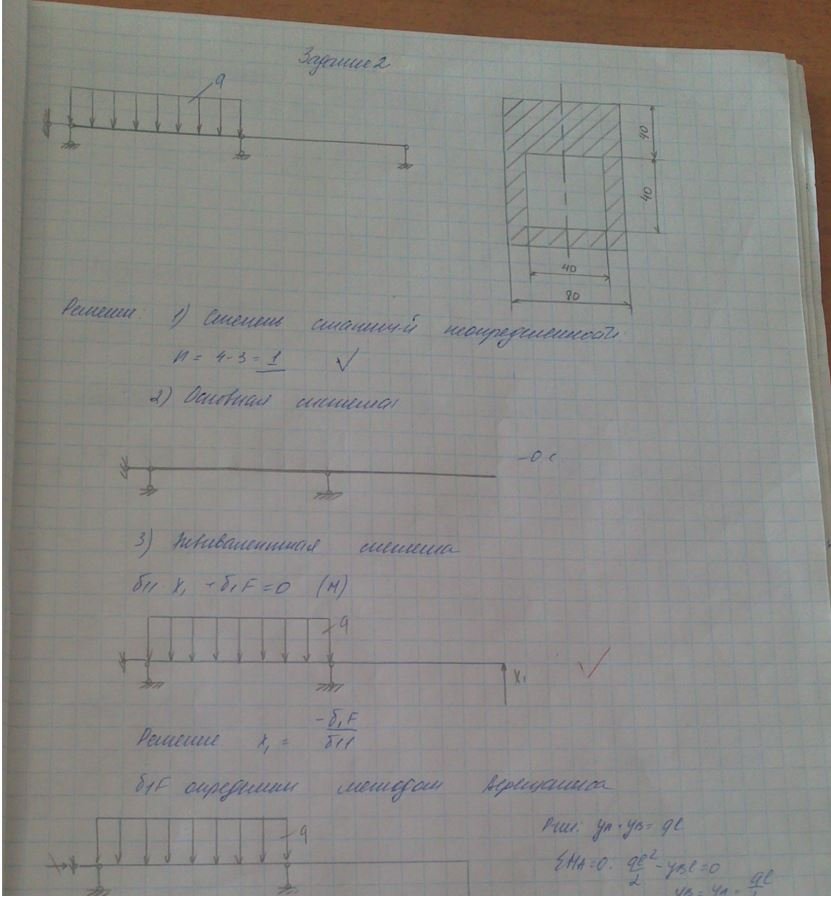 Задание 2
q
40
40
40
80
Решение: 1) Степень статич-й неопределенности:
n = 4-3 = 1 ✓
2) Основная система:
-О.С.
3) Эквивалентная система
δ11·X1 + δ1F = 0 (М)
q
X1
Решение X1 = -δ1F/δ11
δ1F определим методом Верещагина
q
Реш: yA+yB= ql
ΣMA=0: ql²/2 - yBl=0
yB=yA= ql